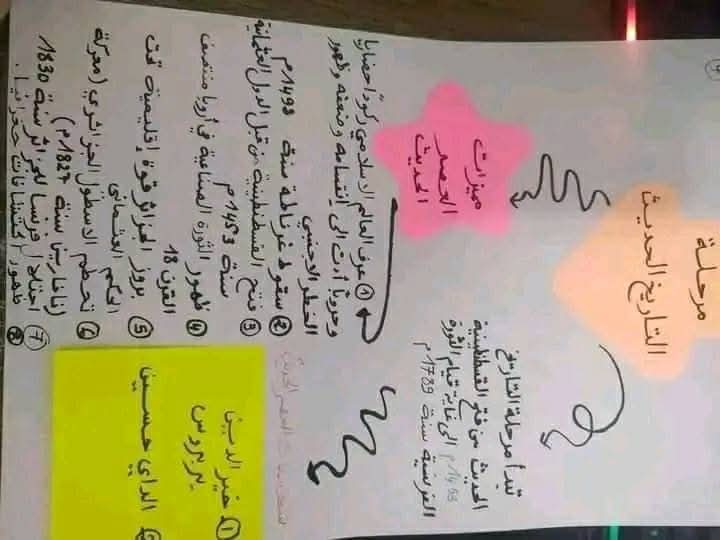 مرحلة
التاريخ الحديث
تبدأ مرحلة التاريخ
الحديث من فتح القسطنطينية
1453م الى غاية قيام الثورة
الفرنسية سنة 1789م
مميزات
العصر
الحديث
① عرف العالم الاسلامي ركودا حضاريا
وحروبا أدت الى إنقسامه وضعفه وظهور
الخطر الاجنبي
② سقوط غرناطة سنة 1493م
③ فتح القسطنطينية من قبل الدول العثمانية
سنة 1453م
④ ظهور الثورة الصناعية في أروبا منتصف
القرن 18
⑤ بروز الجزائر قوة إقليمية تحت
الحكم العثماني
⑥ تحطم الاسطول الجزائري (معركة
نافارين سنة 1827م)
⑦ احتلال فرنسا للجزائر سنة 1830
⑧ ظهور اكتشافات جغرافيا.
شخصيات العصر الحديث
① خير الدين
بربروس
② الداي حسين